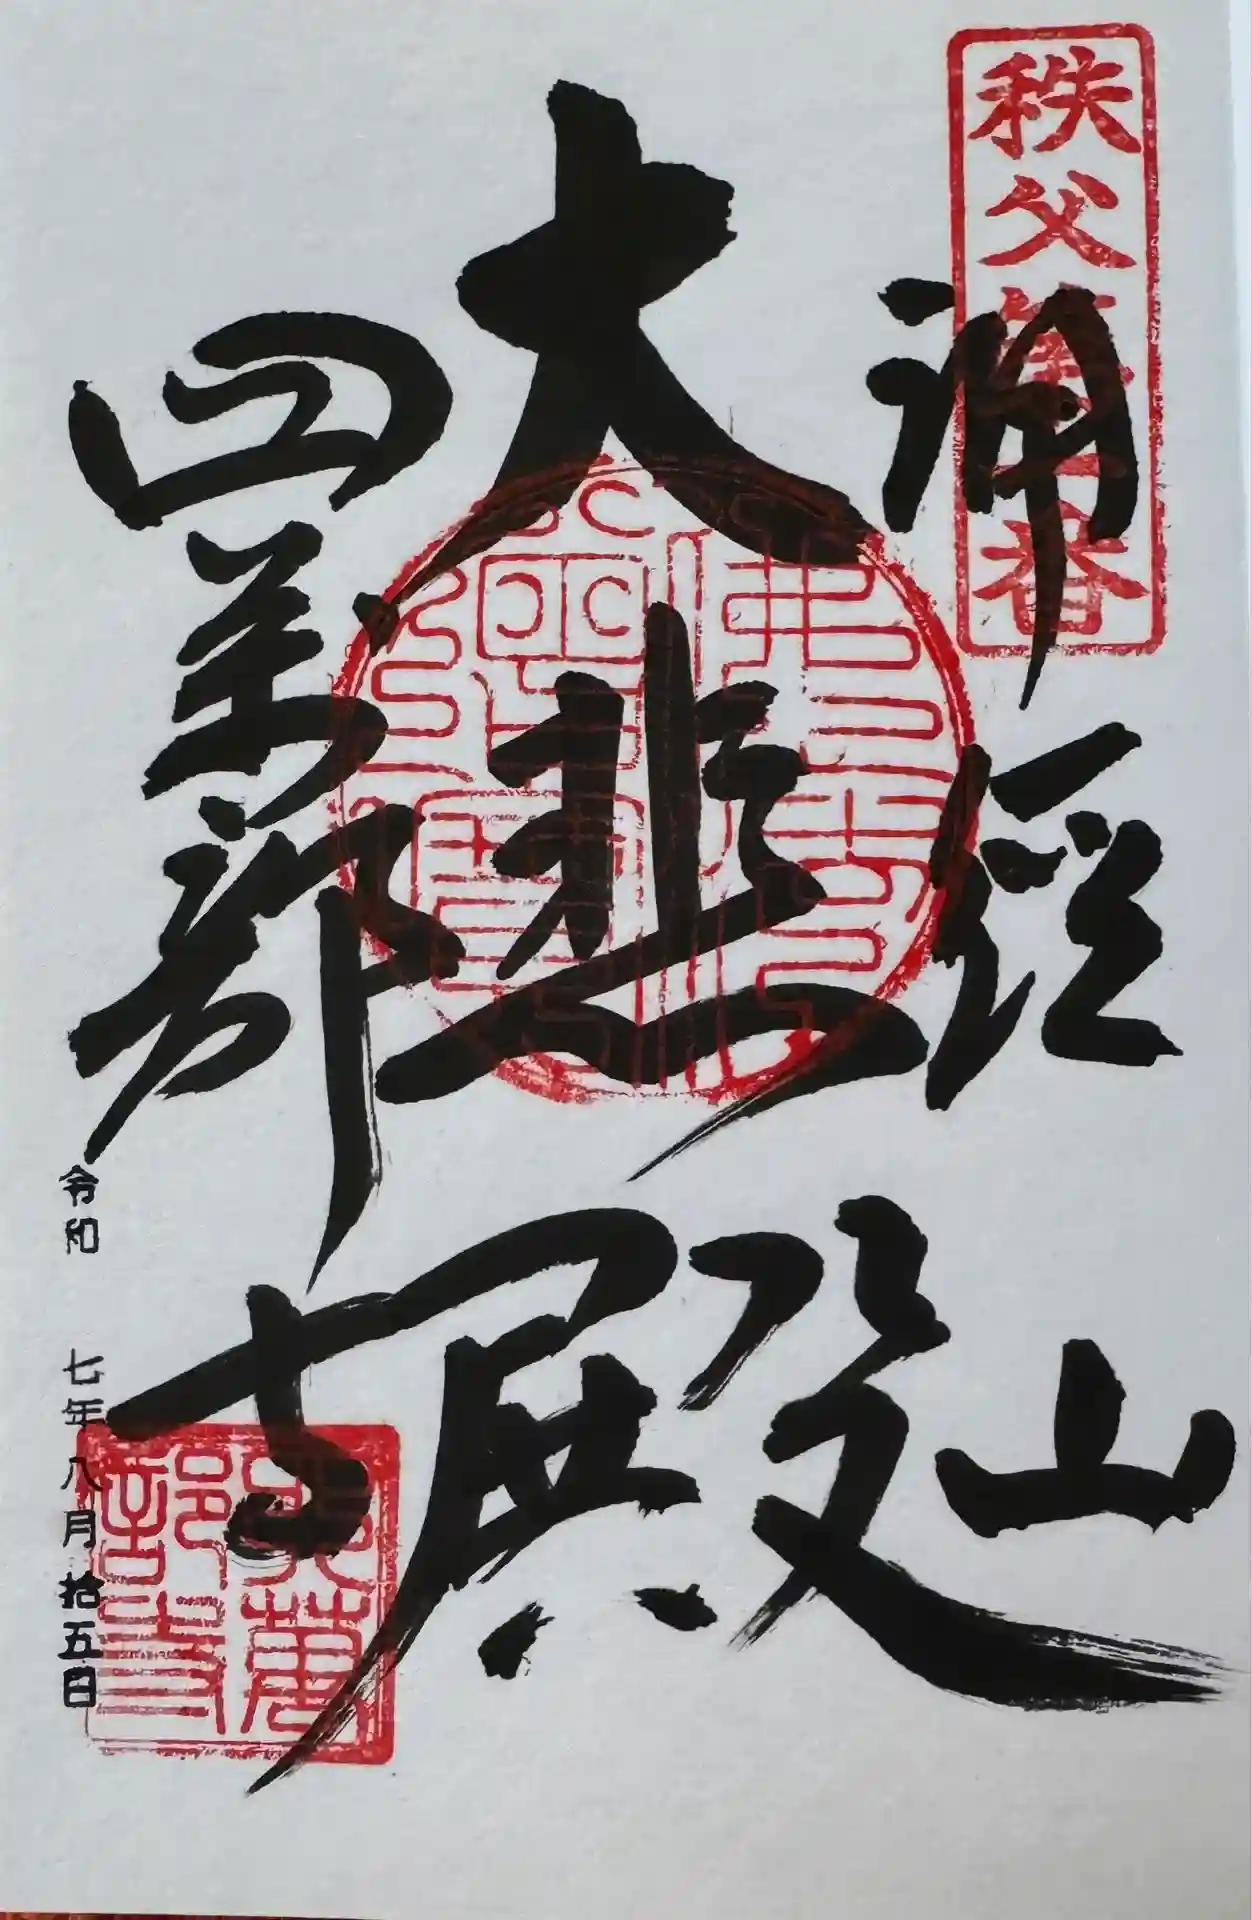 秩父第一番
誦經山
大悲殿
四萬部寺
令和 七年八月拾五日
四萬部寺